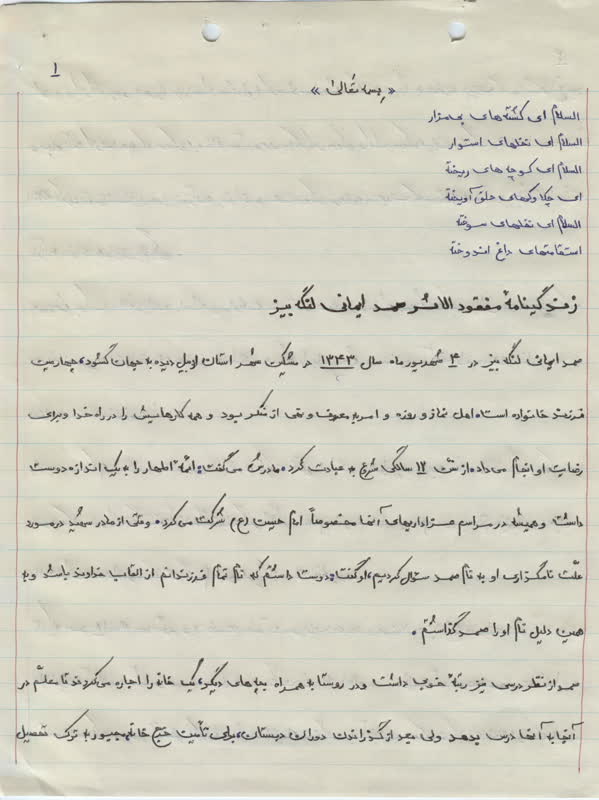 ۱
« بِسمه تَعالیٰ »
السلام ای کشته های بی مزار
السلام ای نخلهای استوار
السلام ای کوچه های ریخته
ای چکاوکهای حلق آویخته
السلام ای نخلهای سوخته
استقامتهای داغ اندوخته
زندگینامهٔ مفقود الاثر صمد ایمانی لنگه بیز
صمد ایمانی لنگه بیز در ۴ شهریور ماه سال ۱۳۴۳ در مشکین شهر استان اردبیل دیده به جهان گشود، چهارمین
فرزند خانواده است، اهل نماز و روزه و امر به معروف و نهی از منکر بود و همه کارهایش را در راه خدا و برای
رضایت او انجام می داد، از سنّ ۱۲ سالگی شروع به عبادت کرد، مادرش می گفت: ائمّهٔ اطهار را به یک اندازه دوست
داشت و همیشه در مراسم عزاداریهای آنها مخصوصاً امام حسین (ع) شرکت می کرد، وقتی از مادر شهید در مورد
علّت نامگذاری او به نام صمد سئوال کردیم، او گفت: دوست داشتم که نام تمام فرزندانم از القاب خداوند باشد و به
همین دلیل نام او را صمد گذاشتم .
صمد از نظر درسی نیز رتبهٔ خوبی داشت و در روستا به همراه بچه های دیگر، یک خانه را اجاره می کردند تا معلّم در
آنجا به آنها درس بدهد ولی بعد از گذراندن دوران دبستان، برای تأمین خرج خانه، مجبور به ترک تحصیل